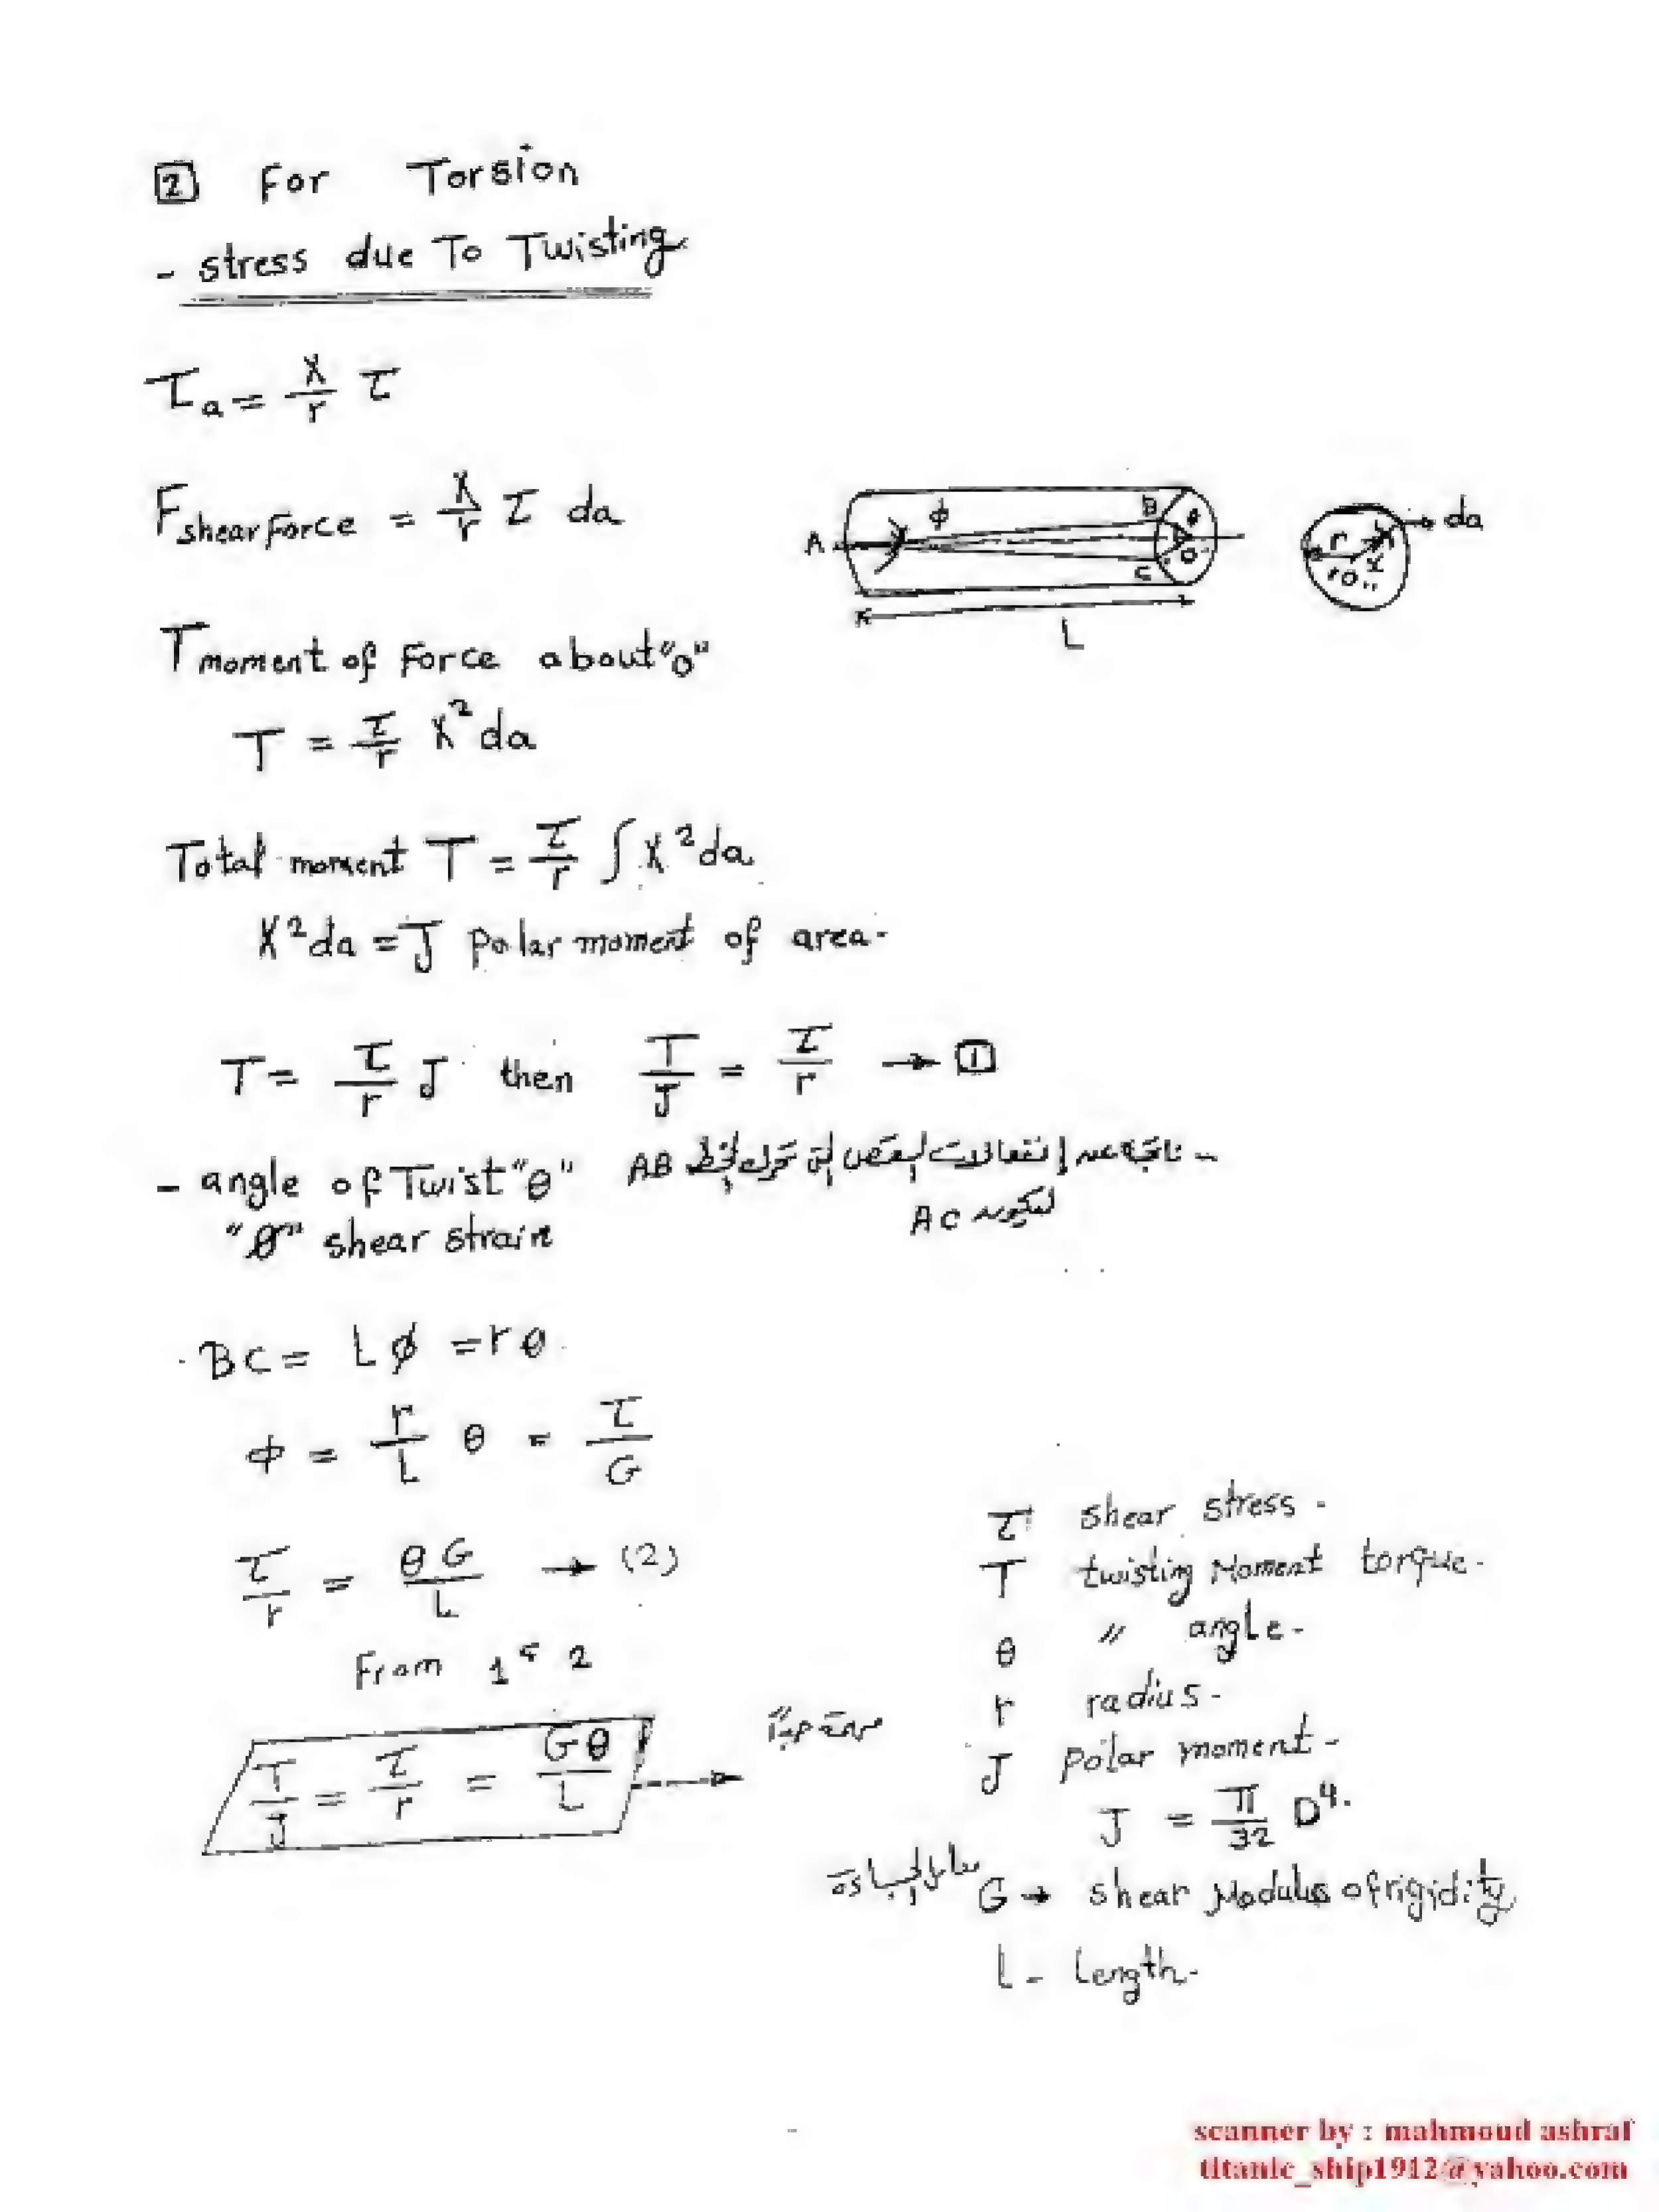 2 For Torsion
- stress due To Twisting
τa = x/r τ
F shear Force = x/r τ da
A φ B θ O C L
r x da "o"
T moment of Force about "o"
T = τ/r x² da
Total moment T = τ/r ∫ x² da
x² da = J polar moment of area.
T = τ/r J then T/J = τ/r → 1
- angle of Twist "θ"
"Ø" shear strain
- ناتجة عن إنفعالات القص التى تحرك الخط AB
ليكون AC
BC = Lφ = rθ
φ = r/L θ = τ/G
τ/r = θG/L → (2)
From 1 , 2
T/J = τ/r = Gθ/L →
τ shear stress.
T twisting Moment torque.
θ " angle.
r radius.
J polar moment.
J = π/32 D⁴.
معامل الجساءة G → shear Modulus of rigidity
L - Length.
scanner by : mahmoud ashraf
titanic_ship1912@yahoo.com